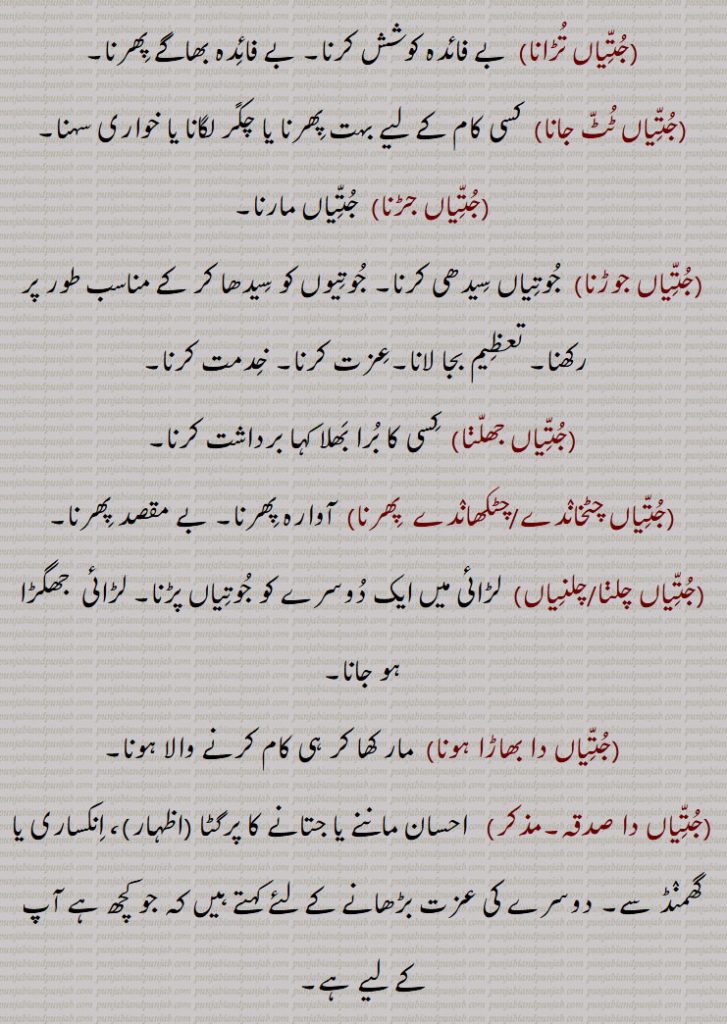 (جُتِّیاں تُڑانا) بے فائدہ کوشش کرنا۔ بے فائِدہ بھاگے پِھرنا۔
(جُتِّیاں ٹُٹّ جانا) کسی کام کے لیے بہت پِھرنا یا چکّر لگانا یا خواری سہنا۔
(جُتِّیاں جڑنا) جُتِّیاں مارنا۔
(جُتِّیاں جوڑنا) جُوتِیاں سِیدھی کرنا۔ جُوتِیوں کو سِیدھا کر کے مناسب طور پر
رکھنا۔ تعظِیم بجا لانا۔عِزت کرنا۔ خِدمت کرنا۔
(جُتِّیاں جھلّݨا) کِسی کا بُرا بَھلا کہا برداشت کرنا۔
(جُتِّیاں چٹخان٘دے/چٹکھان٘دے پِھرنا) آوارہ پِھرنا۔ بے مقصد پِھرنا۔
(جُتِّیاں چلݨا/چلنِیاں) لڑائی میں ایک دُوسرے کو جُوتِیاں پڑنا۔ لڑائی جھگڑا
ہو جانا۔
(جُتِّیاں دا بھاڑا ہونا) مار کھا کر ہی کام کرنے والا ہونا۔
(جُتِّیاں دا صدقہ۔مذکر) احسان ماننے یا جتانے کا پرگٹا (اظہار)، اِنکساری یا
گھمن٘ڈ سے۔ دوسرے کی عزت بڑھانے کے لئے کہتے ہیں کہ جو کچھ ہے آپ
کے لیے ہے۔